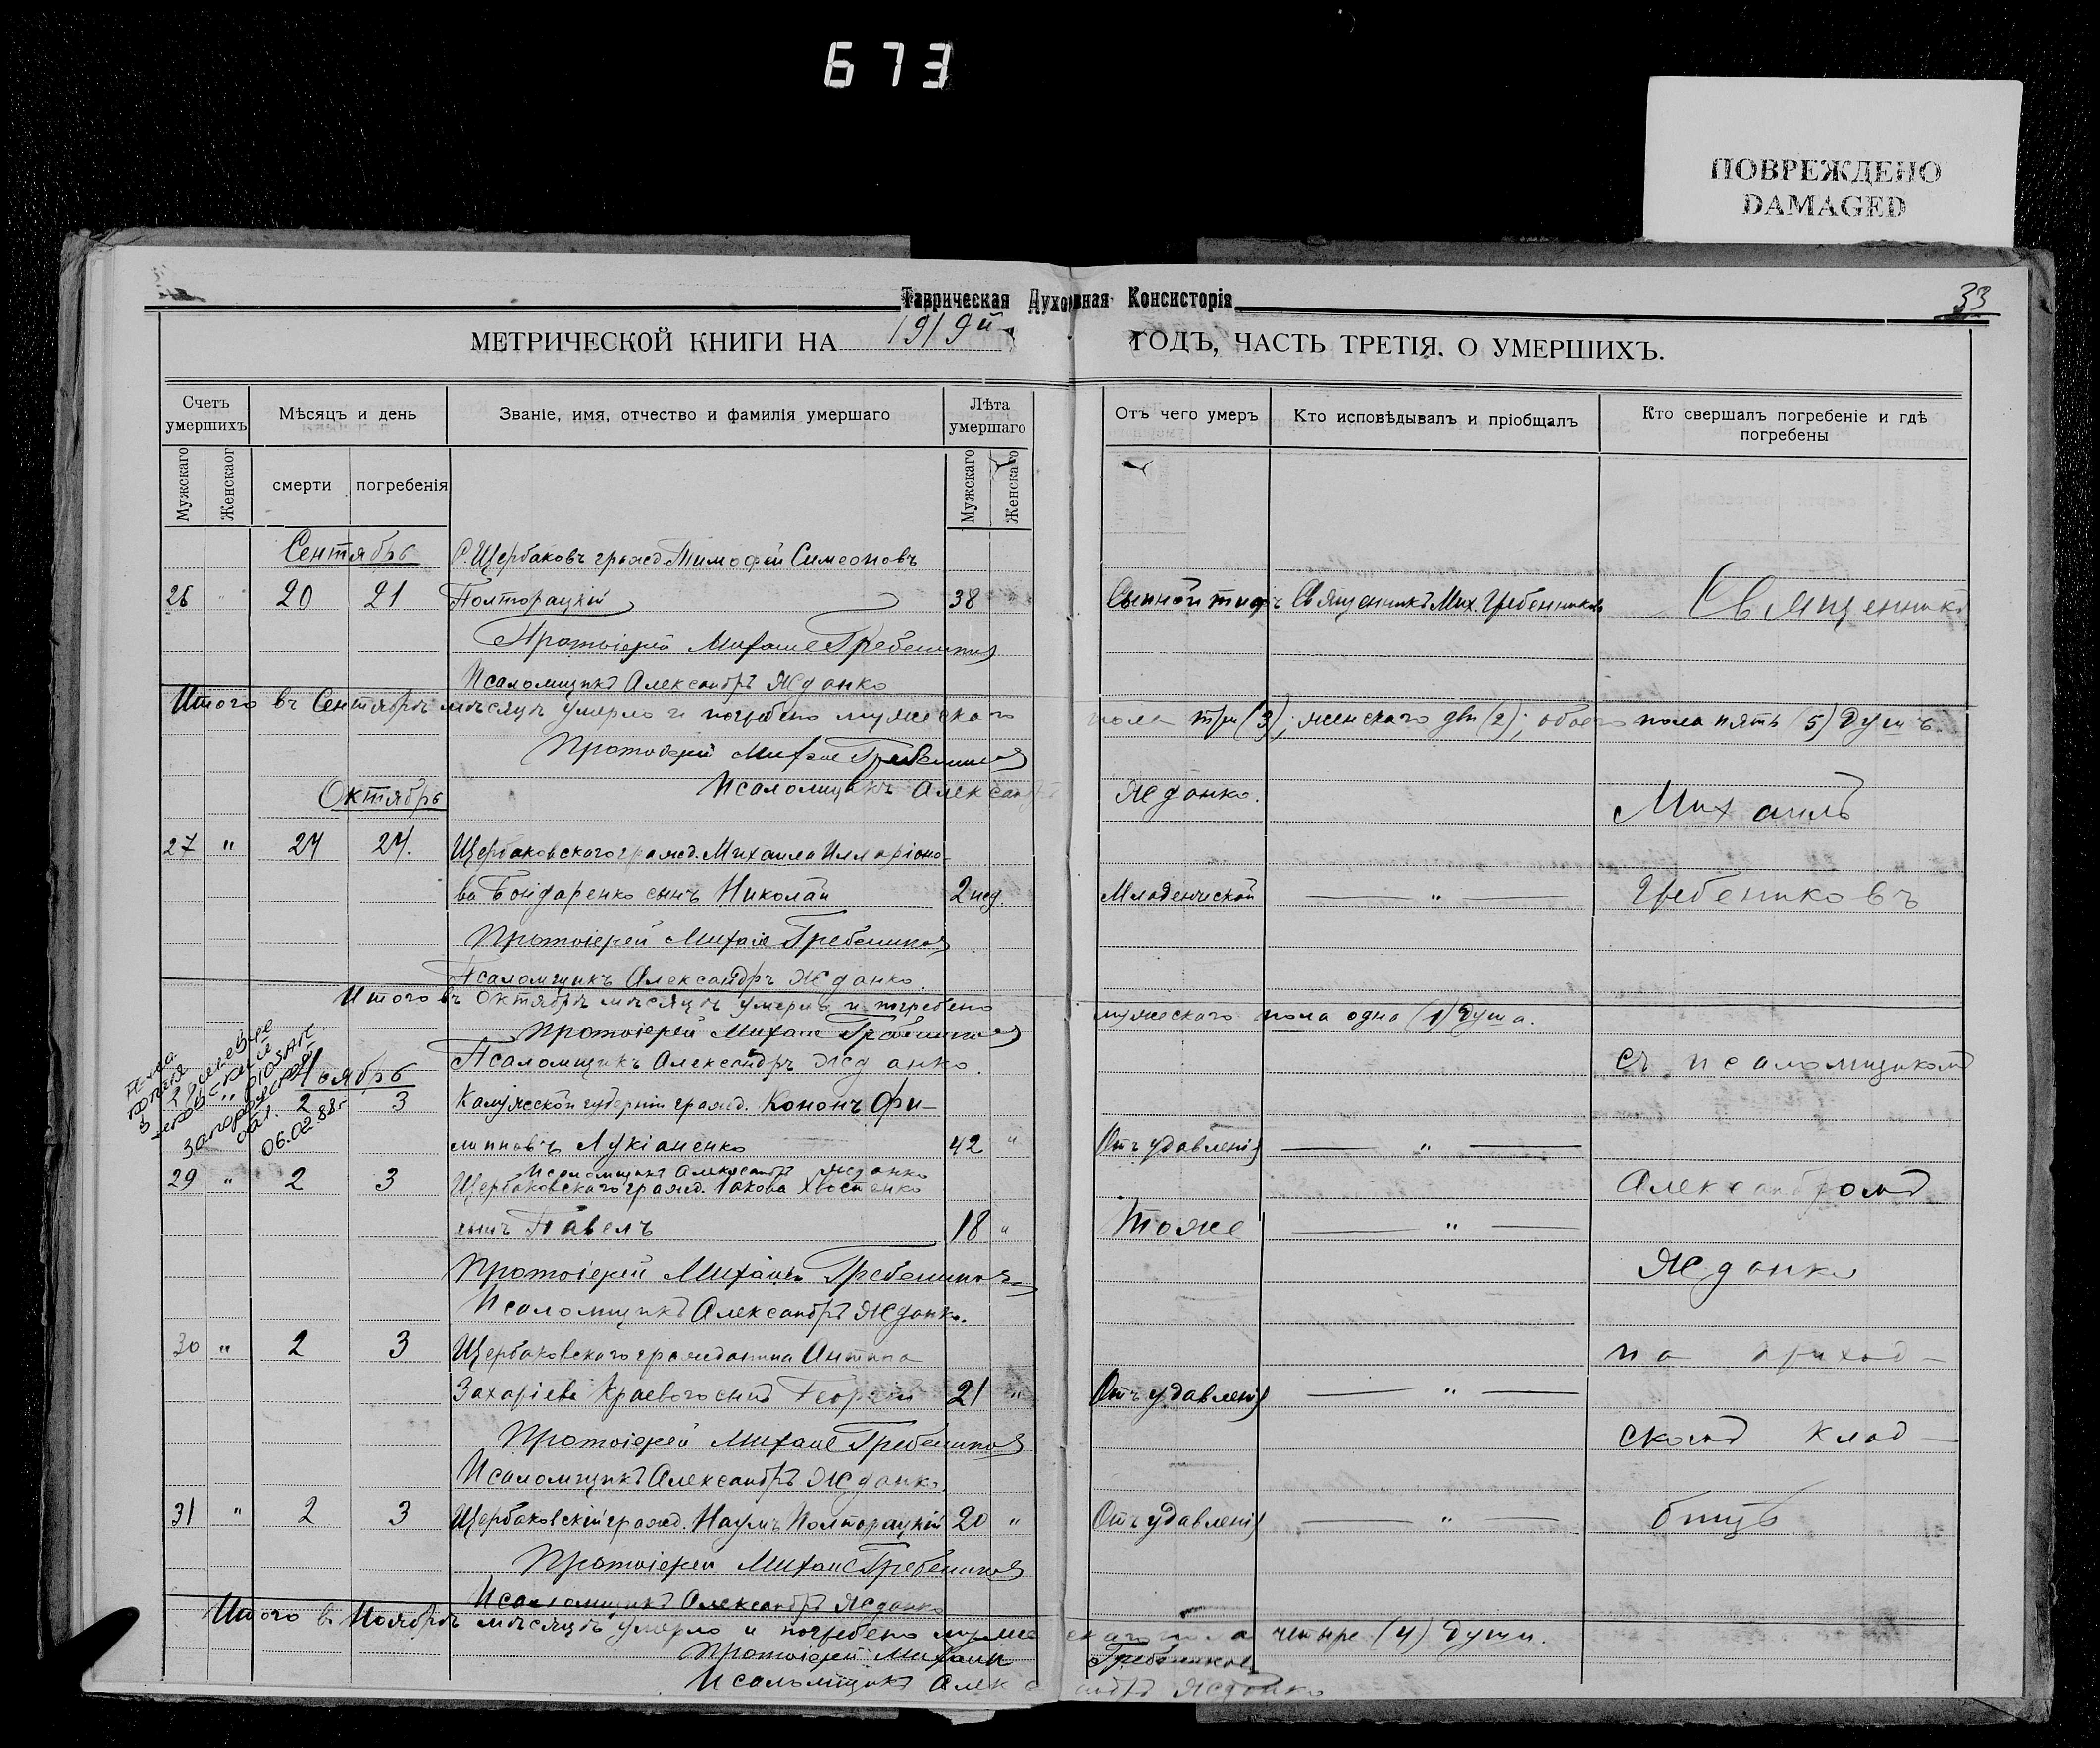 673
ПОВРЕЖДЕНО
DAMAGED
Таврическая Духовная Консисторія
33
МЕТРИЧЕСКОЙ КНИГИ НА 1919й ГОДЪ, ЧАСТЬ ТРЕТІЯ. О УМЕРШИХЪ.
Счетъ умершихъ
Мѣсяцъ и день
Званіе, имя, отчество и фамилія умершаго
Лѣта умершаго
Отъ чего умеръ
Кто исповѣдывалъ и пріобщалъ
Кто свершалъ погребеніе и гдѣ погребены
Мужскаго
Женскаог
смерти
погребенія
Мужскаго
Женскаго
Сентябрь С. Щербаковъ гражд. Тимофей Симеоновъ
26 " 20 21 Полторацкій 38 " Сыпной тифъ Священникъ Мих. Гребенниковъ Священникъ
Протоіерей Михаилъ Гребенниковъ
Псаломщикъ Александръ Жданко
Итого въ Сентябрѣ мѣсяцѣ умерло и погребено мужескаго пола три (3), женскаго двѣ (2); обоего пола пять (5) душъ.
Протоіерей Михаилъ Гребенниковъ
Октябрь Псаломщикъ Александръ Жданко.
Михаилъ
27 " 24 24. Щербаковскаго гражд. Михаила Илларіоно-
ва Бондаренко сынъ Николай 2 нед. Младенческой — " — Гребениковъ
Протоіерей Михаилъ Гребенниковъ
Псаломщикъ Александръ Жданко.
Итого въ Октябрѣ мѣсяцѣ умерло и погребено мужескаго пола одна (1) душа.
Протоіерей Михаилъ Гребенниковъ
Псаломщикъ Александръ Жданко.
съ псаломщикомъ
Ноябрь
2 3 Калужской губерніи гражд. Кононъ Фи-
липповъ Лукіаненко 42 " Отъ удавленія — " —
06.02.88г
Псаломщикъ Александръ Жданко
29 " 2 3 Щербаковскаго гражд. Іакова Хвостенко
Александромъ
сынъ Павелъ 18 " Тоже — " —
Протоіерей Михаилъ Гребенниковъ
Жданко
Псаломщикъ Александръ Жданко.
30 " 2 3 Щербаковскаго гражданина Антипа
на приход-
Захаріева Краевого сынъ Георгій 21 " Отъ удавленія — " —
Протоіерей Михаилъ Гребенниковъ
скомъ клад-
Псаломщикъ Александръ Жданко.
31 " 2 3 Щербаковскій гражд. Наумъ Полторацкій 20 " Отъ удавленія — " — бищѣ
Протоіерей Михаилъ Гребенниковъ
Псаломщикъ Александръ Жданко
Итого въ Ноябрѣ мѣсяцѣ умерло и погребено мужескаго пола четыре (4) души.
Протоіерей Михаилъ Гребенниковъ
Псаломщикъ Александръ Жданко